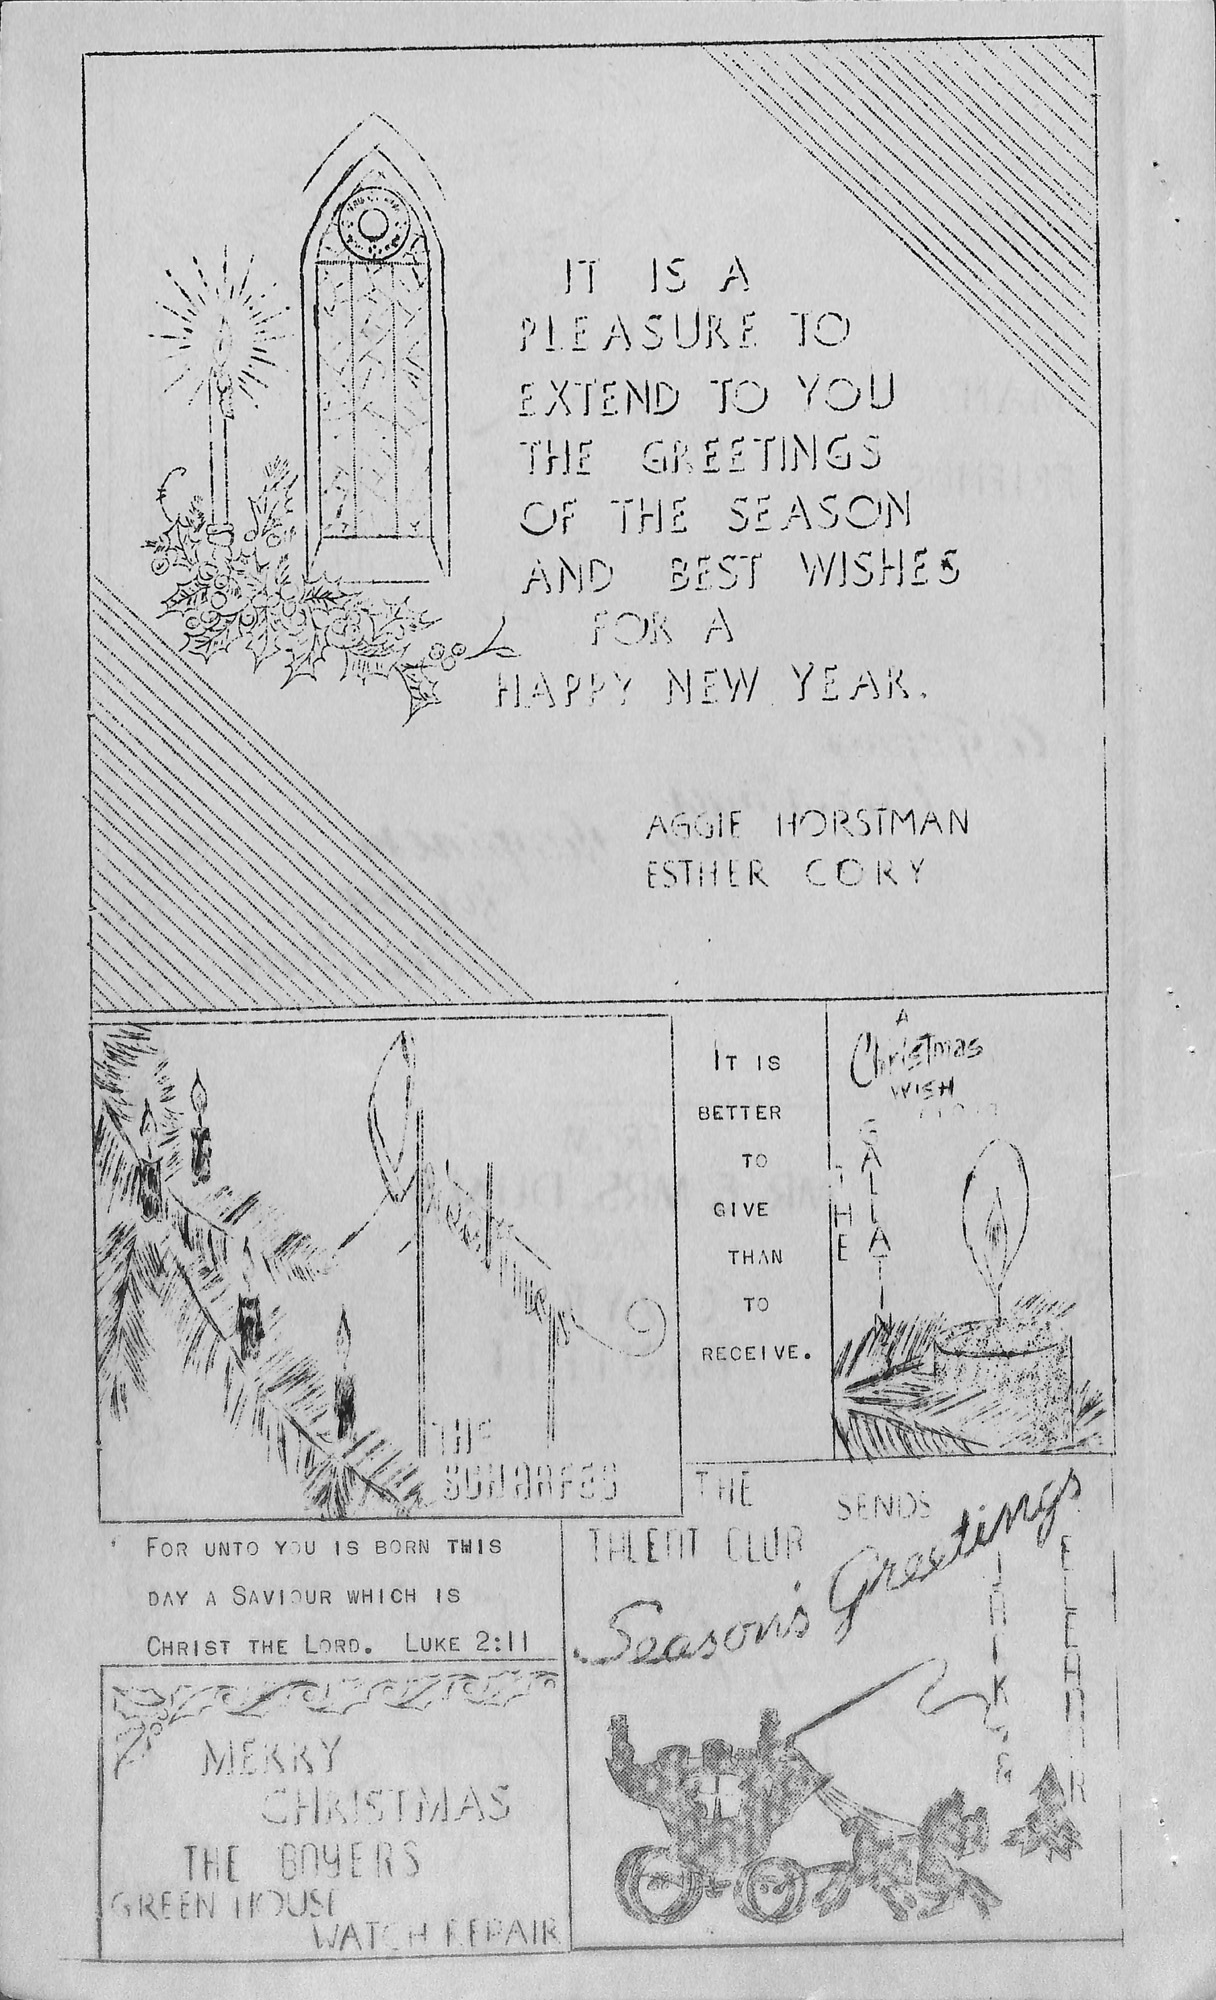 IT IS A
PLEASURE TO
EXTEND TO YOU
THE GREETINGS
OF THE SEASON
AND BEST WISHES
FOR A
HAPPY NEW YEAR.
AGGIE HORSTMAN
ESTHER CORY
THE
SCHARFES
IT IS
BETTER
TO
GIVE
THAN
TO
RECEIVE.
A
Christmas
WISH
THE
GALLATIN
FOR UNTO YOU IS BORN THIS
DAY A SAVIOUR WHICH IS
CHRIST THE LORD. LUKE 2:11
MERRY
CHRISTMAS
THE BOYERS
GREEN HOUSE
WATCH REPAIR
THE
TALENT CLUB
SENDS
Season's Greetings
&
ELEANAR